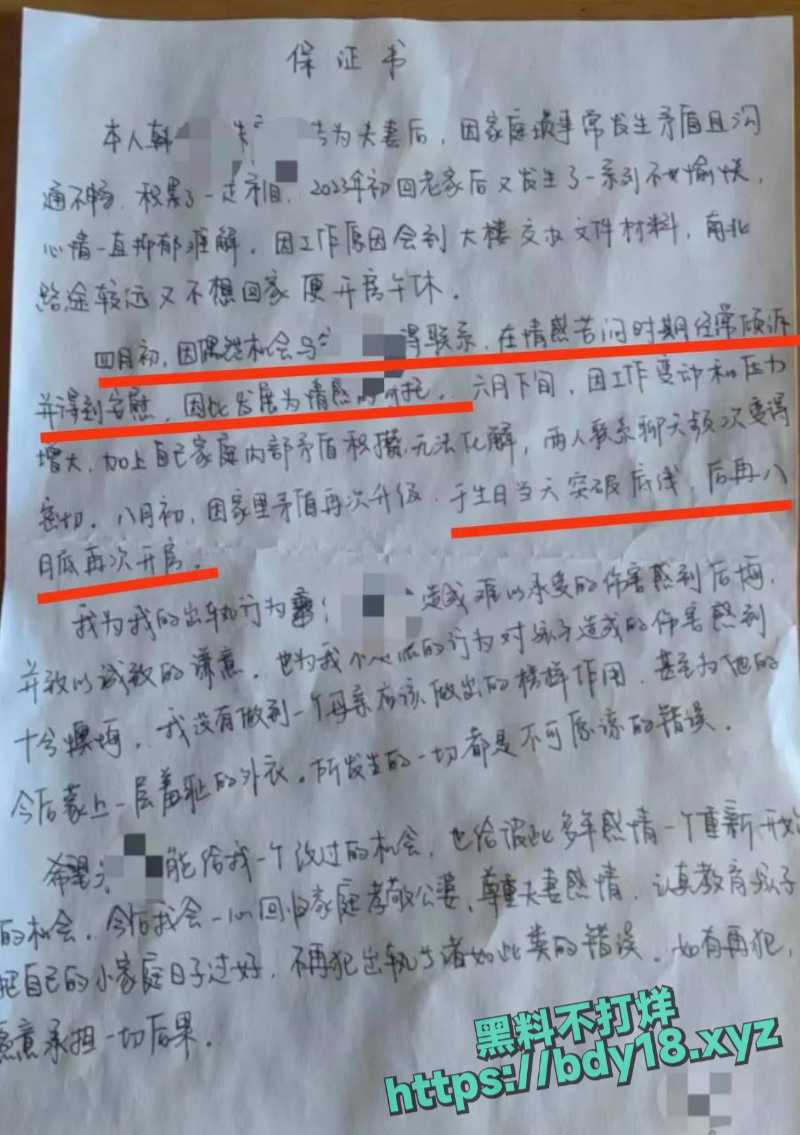 保证书
本人韩 为夫妻后，因家庭琐事常发生矛盾且沟
通不畅，积累了一定矛盾，2023年初回老家后又发生了一系列不愉快，
心情一直抑郁难解，因工作原因会到大楼交办文件材料，南北
路途较远又不想回家便开房午休。
四月初，因偶然机会与 得联系，在情感苦闷时期经常倾诉
并得到安慰，因此发展为情感的 托。六月下旬，因工作变动和压力
增大，加上自己家庭内部矛盾积攒无法化解，两人联系聊天频次变得
密切。八月初，因家里矛盾再次升级，于生日当天突破底线，后再八
月底再次开房。
我为我的出轨行为 造成难以承受的伤害感到后悔，
并致以诚致的歉意。也为我个人 的行为对孩子造成的伤害感到
十分懊悔，我没有做到一个母亲应该做出的榜样作用，甚至为他的
今后蒙上一层羞耻的外衣。所发生的一切都是不可原谅的错误。
希望 能给我一个改过的机会，也给彼此多年感情一个重新开始
的机会。今后我会一心回归家庭孝敬公婆，尊重夫妻感情，认真教育孩子
把自己的小家庭日子过好，不再犯出轨 诸如此类的错误。如有再犯，
愿意承担一切后果。
黑料不打烊
https://bdy18.xyz